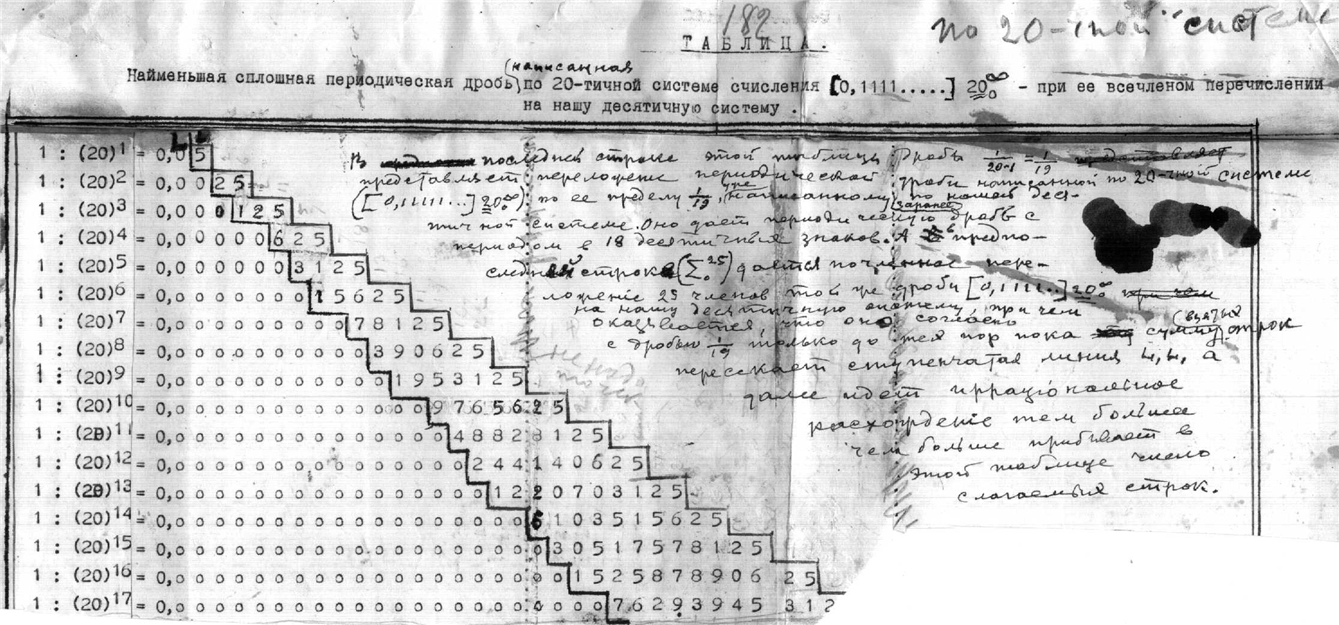 182
по 20-тной системе
ТАБЛИЦА.
написанная
Наименьшая сплошная периодическая дробь по 20-тичной системе счисления [0,1111.....] 20 ∞ 0 - при ее всечленом перечислении
на нашу десятичную систему .
1 : (20)1 = 0,05
1 : (20)2 = 0,0025
1 : (20)3 = 0,000125
1 : (20)4 = 0,00000625
1 : (20)5 = 0,0000003125
1 : (20)6 = 0,000000015625
1 : (20)7 = 0,00000000078125
1 : (20)8 = 0,0000000000390625
1 : (20)9 = 0,000000000001953125
1 : (20)10 = 0,00000000000009765625
1 : (20)11 = 0,0000000000000048828125
1 : (20)12 = 0,000000000000000244140625
1 : (20)13 = 0,00000000000000001220703125
1 : (20)14 = 0,0000000000000000006103515625
1 : (20)15 = 0,000000000000000000030517578125
1 : (20)16 = 0,00000000000000000000152587890625
1 : (20)17 = 0,000000000000000000000076293945312
В последней строке этой таблицы дробь 1/20-1 = 1/19
представляет переложение периодической дроби написанной по 20-чной системе
([0,11111...] 20 ∞ 0) по ее пределу 1/19, уже написанному по нашей деся-
заранее
тичной системе. Оно дает периодическую дробь с
периодом в 18 десятичных знаков. А в предпо-
следней строке (∑ 25 0) дается почленное пере-
ложеніе 25 членов той же дроби [0,1111...] 20 ∞ 0
на нашу десятичную систему, при чем
оказывается, что оно согласно
с дробью 1/19 только до тех пор пока сумму строк
(взятых
пересекает ступенчатая линия а
далее идет ирраціональное
расхожденіе тем больше
чем больше прибывает в
этой таблице число
слагаемых строк.